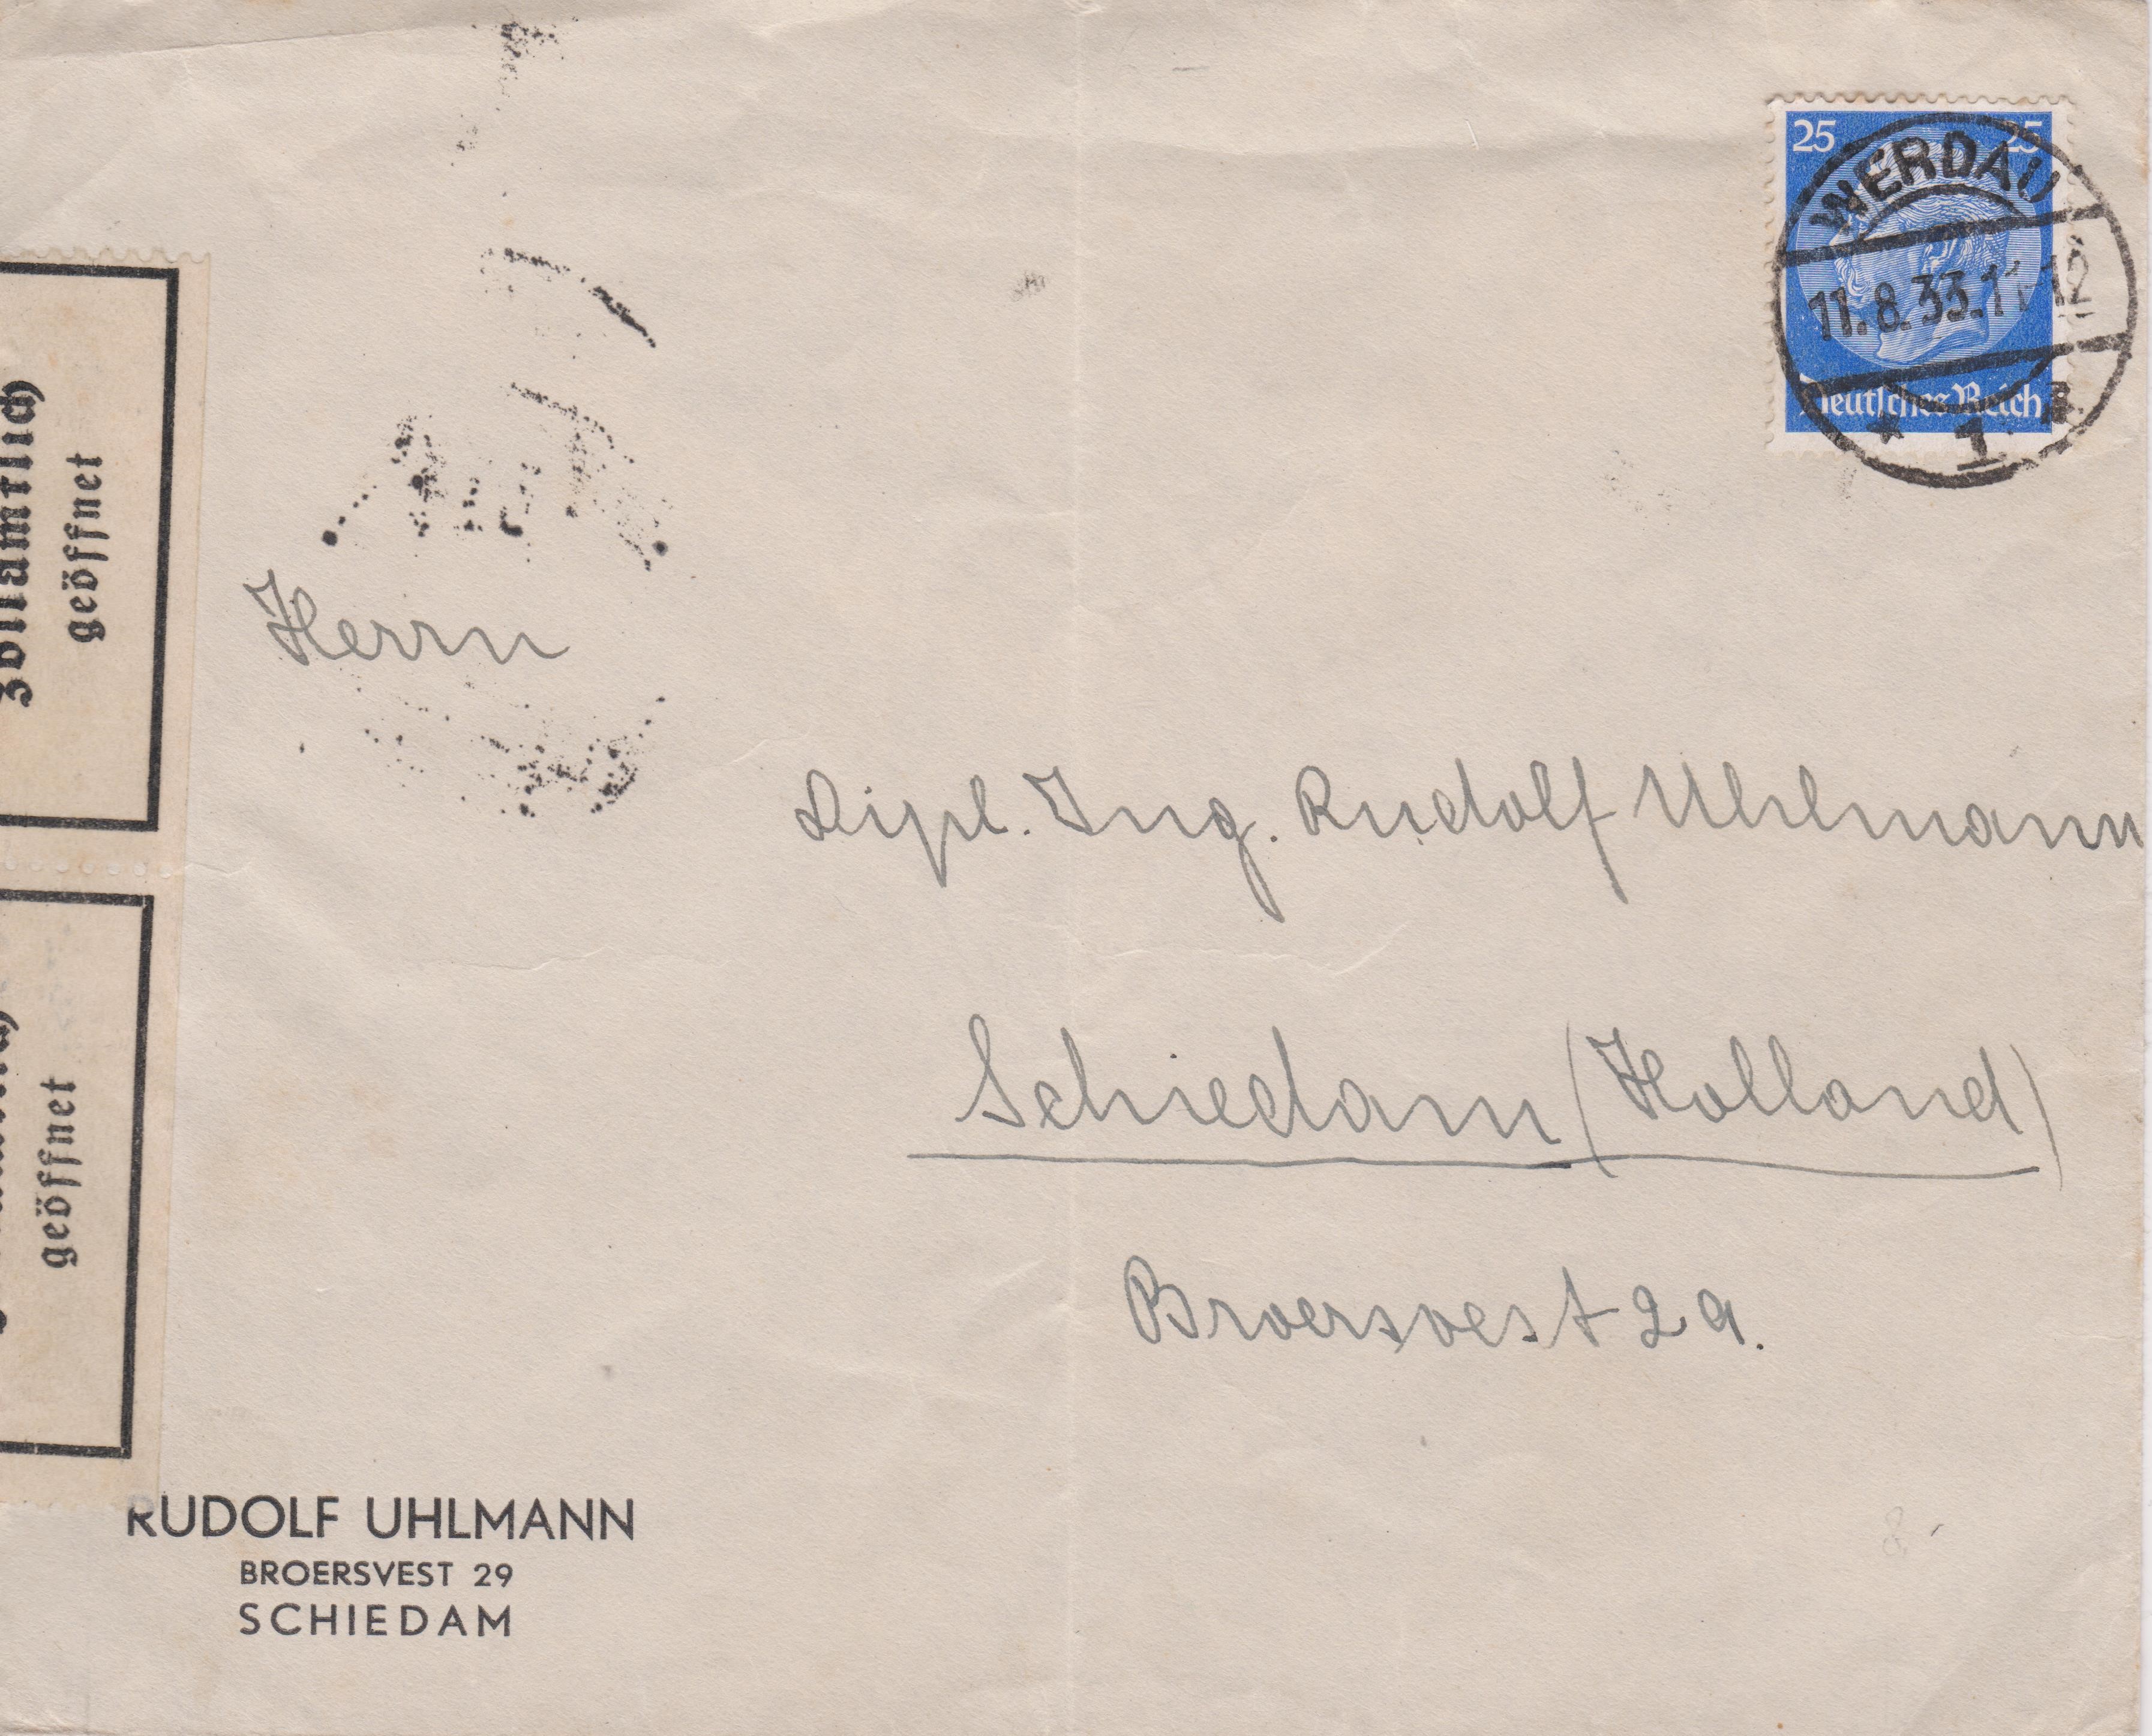 25 25
WERDAU
11.8.33.11-12
* 1 *
Deutsches Reich
Zollamtlich
geöffnet
geöffnet
Herrn
Dipl. Ing. Rudolf Uhlmann
Schiedam (Holland)
Broersvest 29.
RUDOLF UHLMANN
BROERSVEST 29
SCHIEDAM